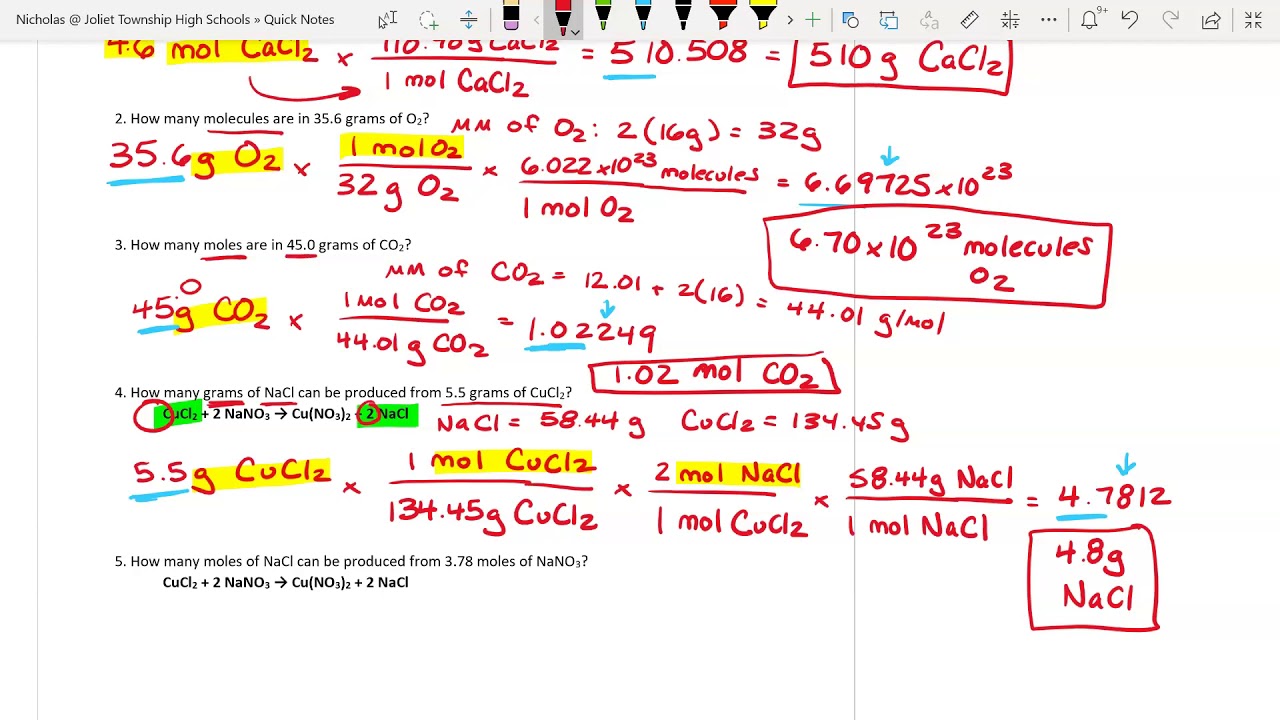 Nicholas @ Joliet Township High Schools » Quick Notes
9+
4.6 mol CaCl₂ × 110.98g CaCl₂ / 1 mol CaCl₂ = 510.508 = 510 g CaCl₂
2. How many molecules are in 35.6 grams of O₂?
MM of O₂: 2(16g) = 32g
35.6g O₂ × 1 mol O₂ / 32 g O₂ × 6.022×10²³ molecules / 1 mol O₂ = 6.69725×10²³
6.70×10²³ molecules
O₂
3. How many moles are in 45.0 grams of CO₂?
MM of CO₂ = 12.01 + 2(16) = 44.01 g/mol
45.0g CO₂ × 1 mol CO₂ / 44.01 g CO₂ = 1.02249
1.02 mol CO₂
4. How many grams of NaCl can be produced from 5.5 grams of CuCl₂?
CuCl₂ + 2 NaNO₃ → Cu(NO₃)₂ + 2 NaCl
NaCl = 58.44 g CuCl₂ = 134.45 g
5.5g CuCl₂ × 1 mol CuCl₂ / 134.45g CuCl₂ × 2 mol NaCl / 1 mol CuCl₂ × 58.44g NaCl / 1 mol NaCl = 4.7812
4.8g
NaCl
5. How many moles of NaCl can be produced from 3.78 moles of NaNO₃?
CuCl₂ + 2 NaNO₃ → Cu(NO₃)₂ + 2 NaCl